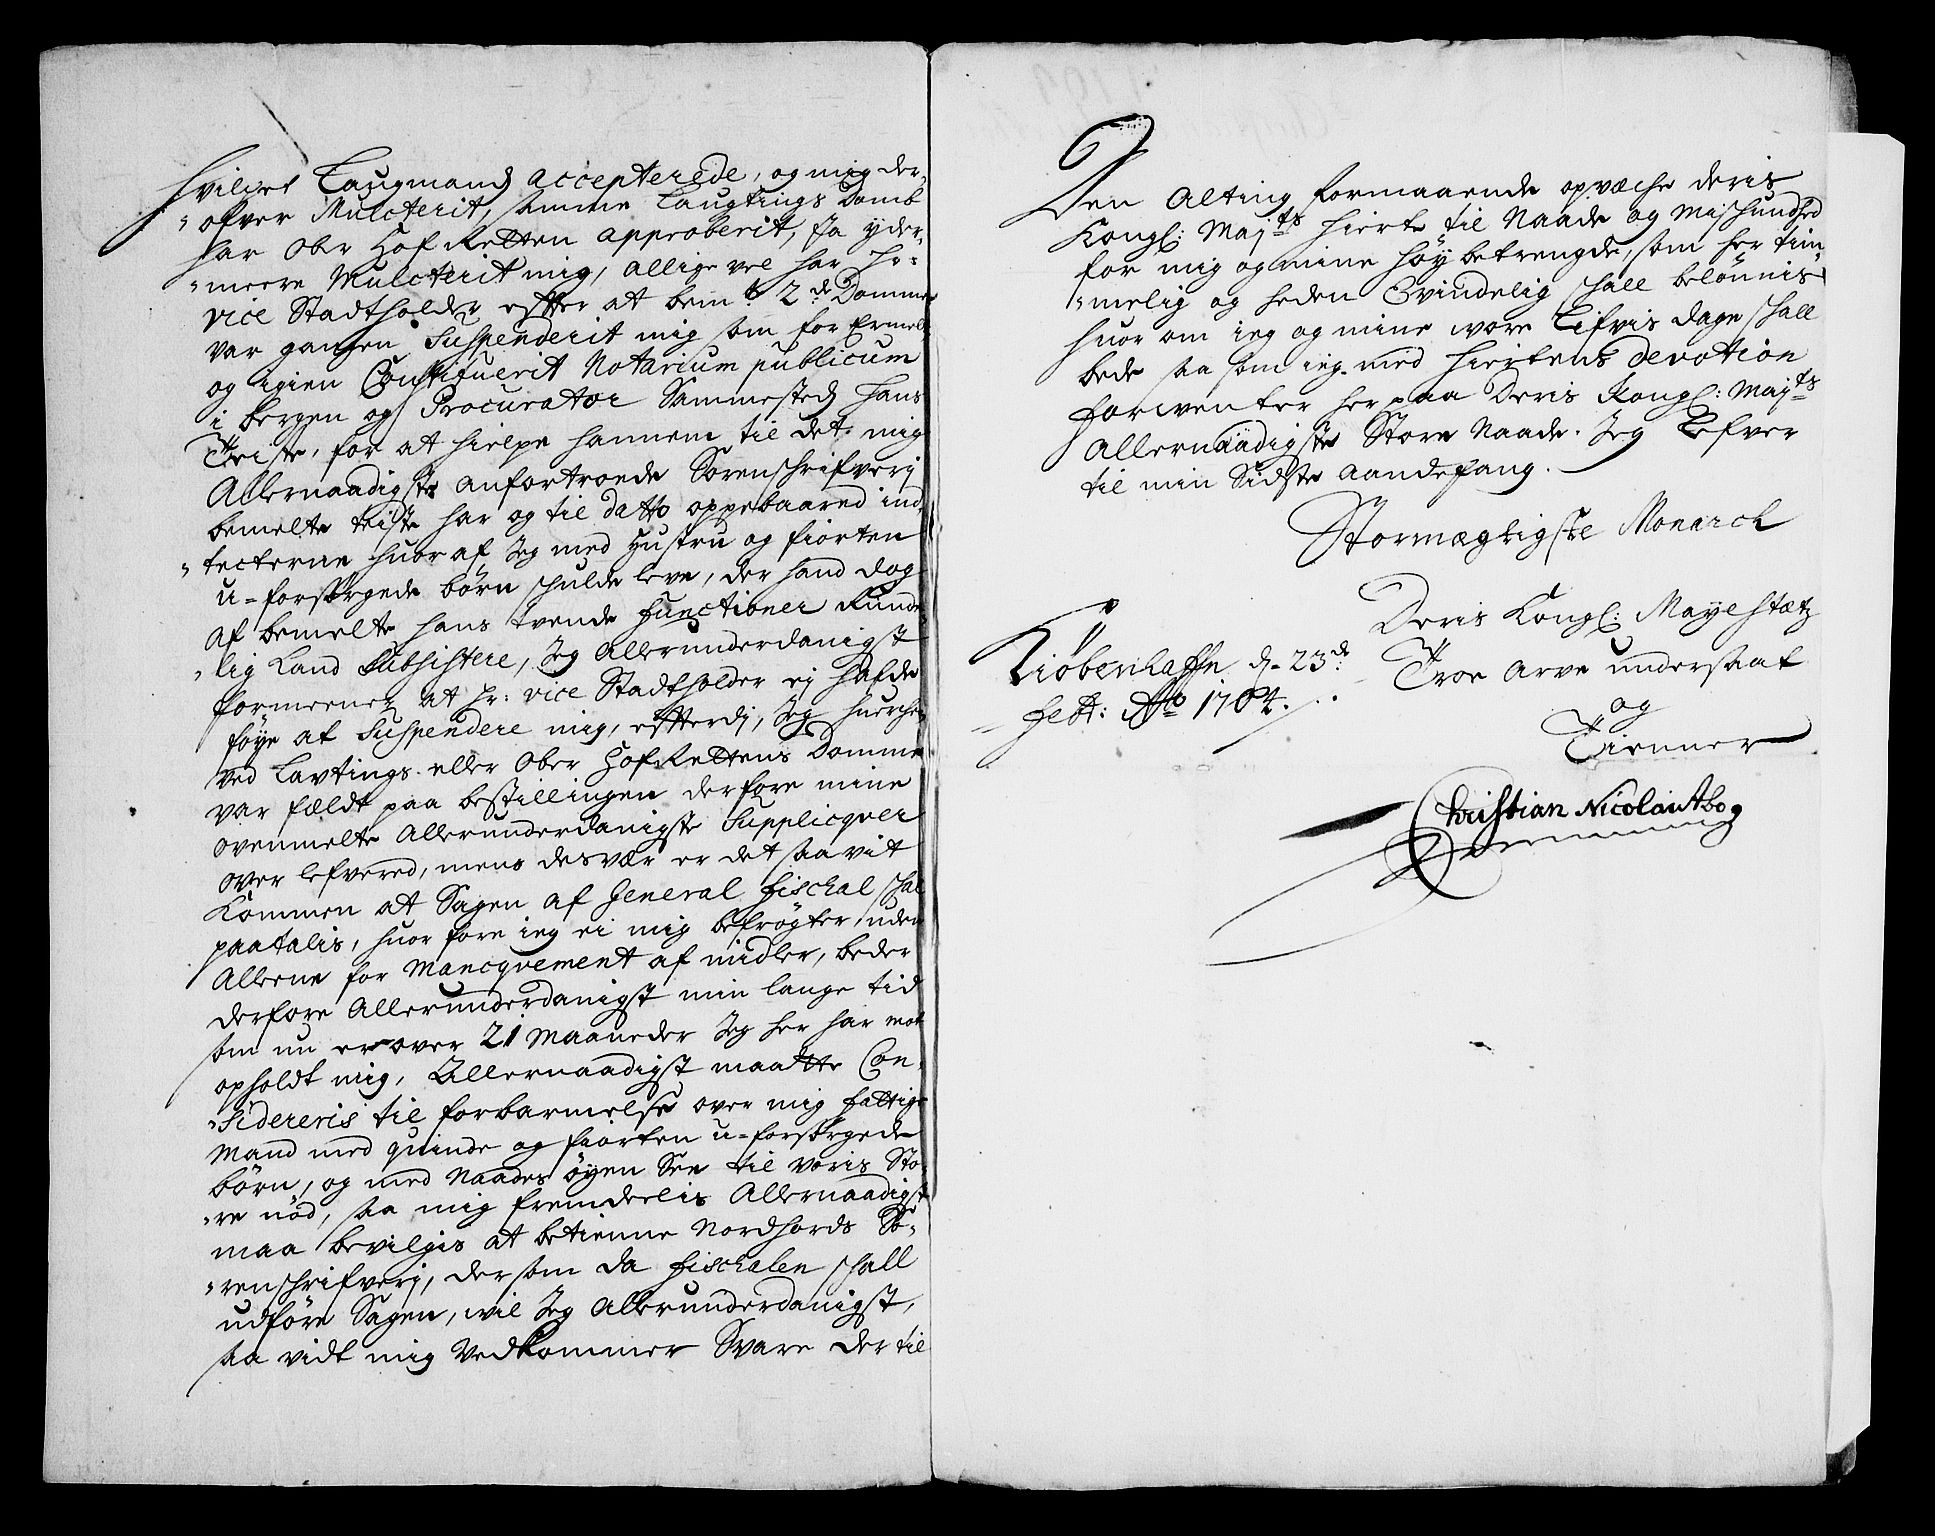 hvilket Laugmand accepterede, og mig der-
"ofver Mulcterit, samme Laugtings Domb
har Ober Hof Retten approberit, ja yder-
"meere Mulcterit mig, allige vel har Hr:
vice Stadtholder effter at bem:te 2de Domme
var gangen Suspenderit mig som for Ermelt
og igien Constituerit Notarium publicum
i bergen og Procurator Sammested Hans
Teiste, for at hielpe hannem til det mig
Allernaadigste anfortroede Sorenschrifverj
bemelte teiste har og til datto oppebaared ind
"tecterne huor af Jeg med Hustru og fiorten
u-forsørgede børn schulde leve, der hand dog
af bemelte hans tvende Functioner Kunde
"lig Land Subsistere, Jeg Allerunderdanigst
formeener at Hr: vice Stadtholder ej hafde
føye at Suspendere mig, effterdj, Jeg huerchen
ved Lavtings eller Ober Hof Rettens Domme
var fældt paa bestillingen derfore mine
ovenmelte Allerunderdanigste Supplicqver
over lefvered, mens desvær er det saa vit
Kommen at Sagen af General Fischal schal
paatalis, huor fore ieg ei mig befrøgter uden
Alleene for Mancqvement af midler, beder
derfore Allerunderdanigst min lange tid
som nu er over 21 Maaneder Jeg her har mot
opholdt mig, Allernaadigst maatte Con-
"sidereris til forbarmelse over mig fattige
Mand med quinde og fiorten u-forsørgede
børn, og med Naades øyen See til voris Sto-
"re nød, saa mig fremdeelis Allernaadigst
maa bevilgis at betienne Nordhords So-
"renschrifverj, dersom da Fischalen schall
udføre Sagen, wil Jeg Allerunderdanigst,
saa vidt mig vedkommer Svare der til
Den Alting formaaende opvæche deris
Kongl: Maj:ts Hierte til Naade og Mischundhed
for mig og mine høybetrengde, som her tim-
"melig og heden Evindelig schall belønnis
huor om ieg og mine wore Lifvis dage schall
bede saa som ieg med Hiertens devotion
forwenter her paa Deris Kongl: Maj:ts
Allernaadigste Store Naade. Jeg Lefver
til min Sidste aandefang.
Stormægtigste Monarch
Deris Kongl: Mayestætz
Kiøbenhaffn d. 23de
Troe Arve undersaat
Febr: Ao 1704.
og
Tienner
Christian Nicolai Abo